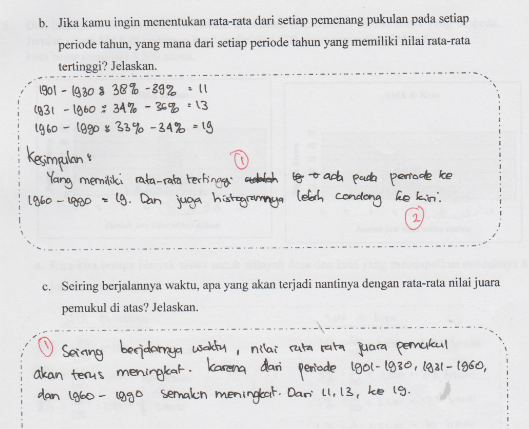 b. Jika kamu ingin menentukan rata-rata dari setiap pemenang pukulan pada setiap
periode tahun, yang mana dari setiap periode tahun yang memiliki nilai rata-rata
tertinggi? Jelaskan.
1901 - 1930 : 38% - 39% = 11
1931 - 1960 : 34% - 36% = 13
1960 - 1990 : 33% - 34% = 19
Kesimpulan :
1
Yang memiliki rata-rata tertinggi ada pada periode ke
1960 - 1990 = 19. Dan juga histogramnya lebih condong ke kiri.
2
c. Seiring berjalannya waktu, apa yang akan terjadi nantinya dengan rata-rata nilai juara
pemukul di atas? Jelaskan.
1 Seiring berjalannya waktu, nilai rata rata juara pemukul
akan terus meningkat. Karena dari periode 1901-1930, 1931-1960,
dan 1960 - 1990 semakin meningkat. Dari 11, 13, ke 19.